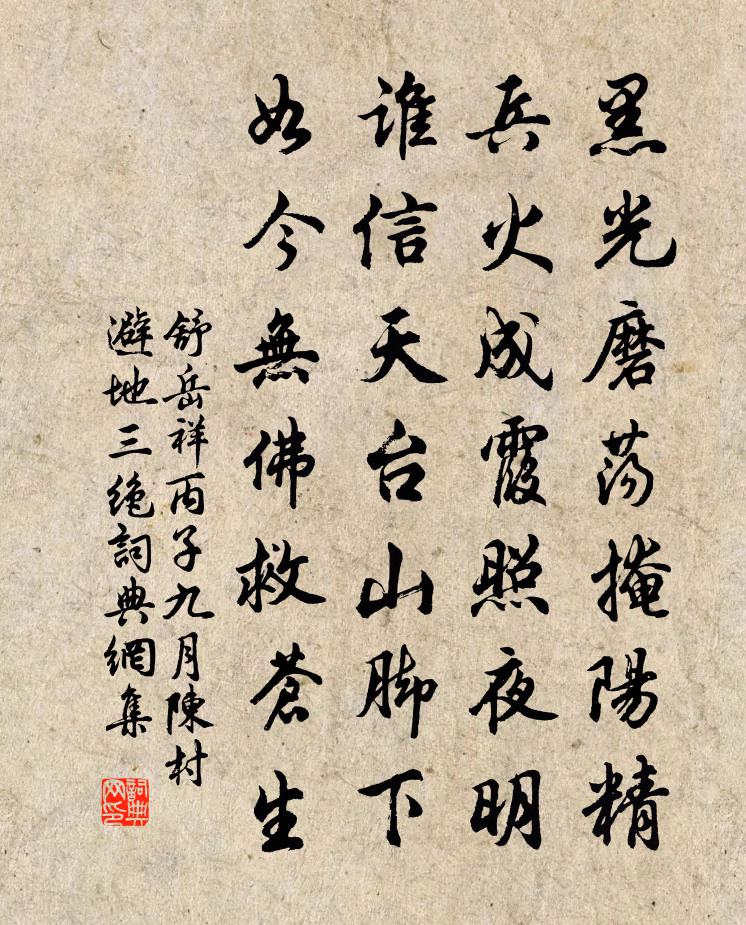 黑光磨荡掩陽精
兵火成霞照夜明
誰信天台山脚下
如今無佛救蒼生
舒岳祥丙子九月陳村
避地三絕詞典網集
詞典
网印